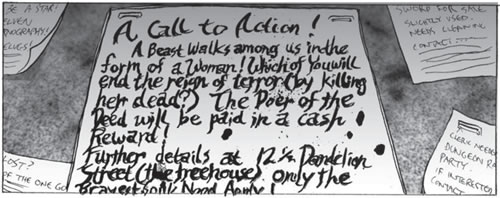 BE A STAR!
ELVEN
PORNOGRAPHY!
ELVES!
A Call to Action!
A Beast Walks among us in the
form of a Woman! Which of You will
end the reign of terror (by killing
her dead?) The Doer of the
Deed will be paid in a cash
Reward!
Further details at 12½ Dandelion
Street (the treehouse) only the
Bravest souls Need Apply!
SWORD FOR SALE
SLIGHTLY USED.
NEEDS
CONTACT:
LOST?
OF THE ONE GO
CLERIC NEEDED
DUNGEON RA
PARTY.
IF INTERESTED
CONTACT